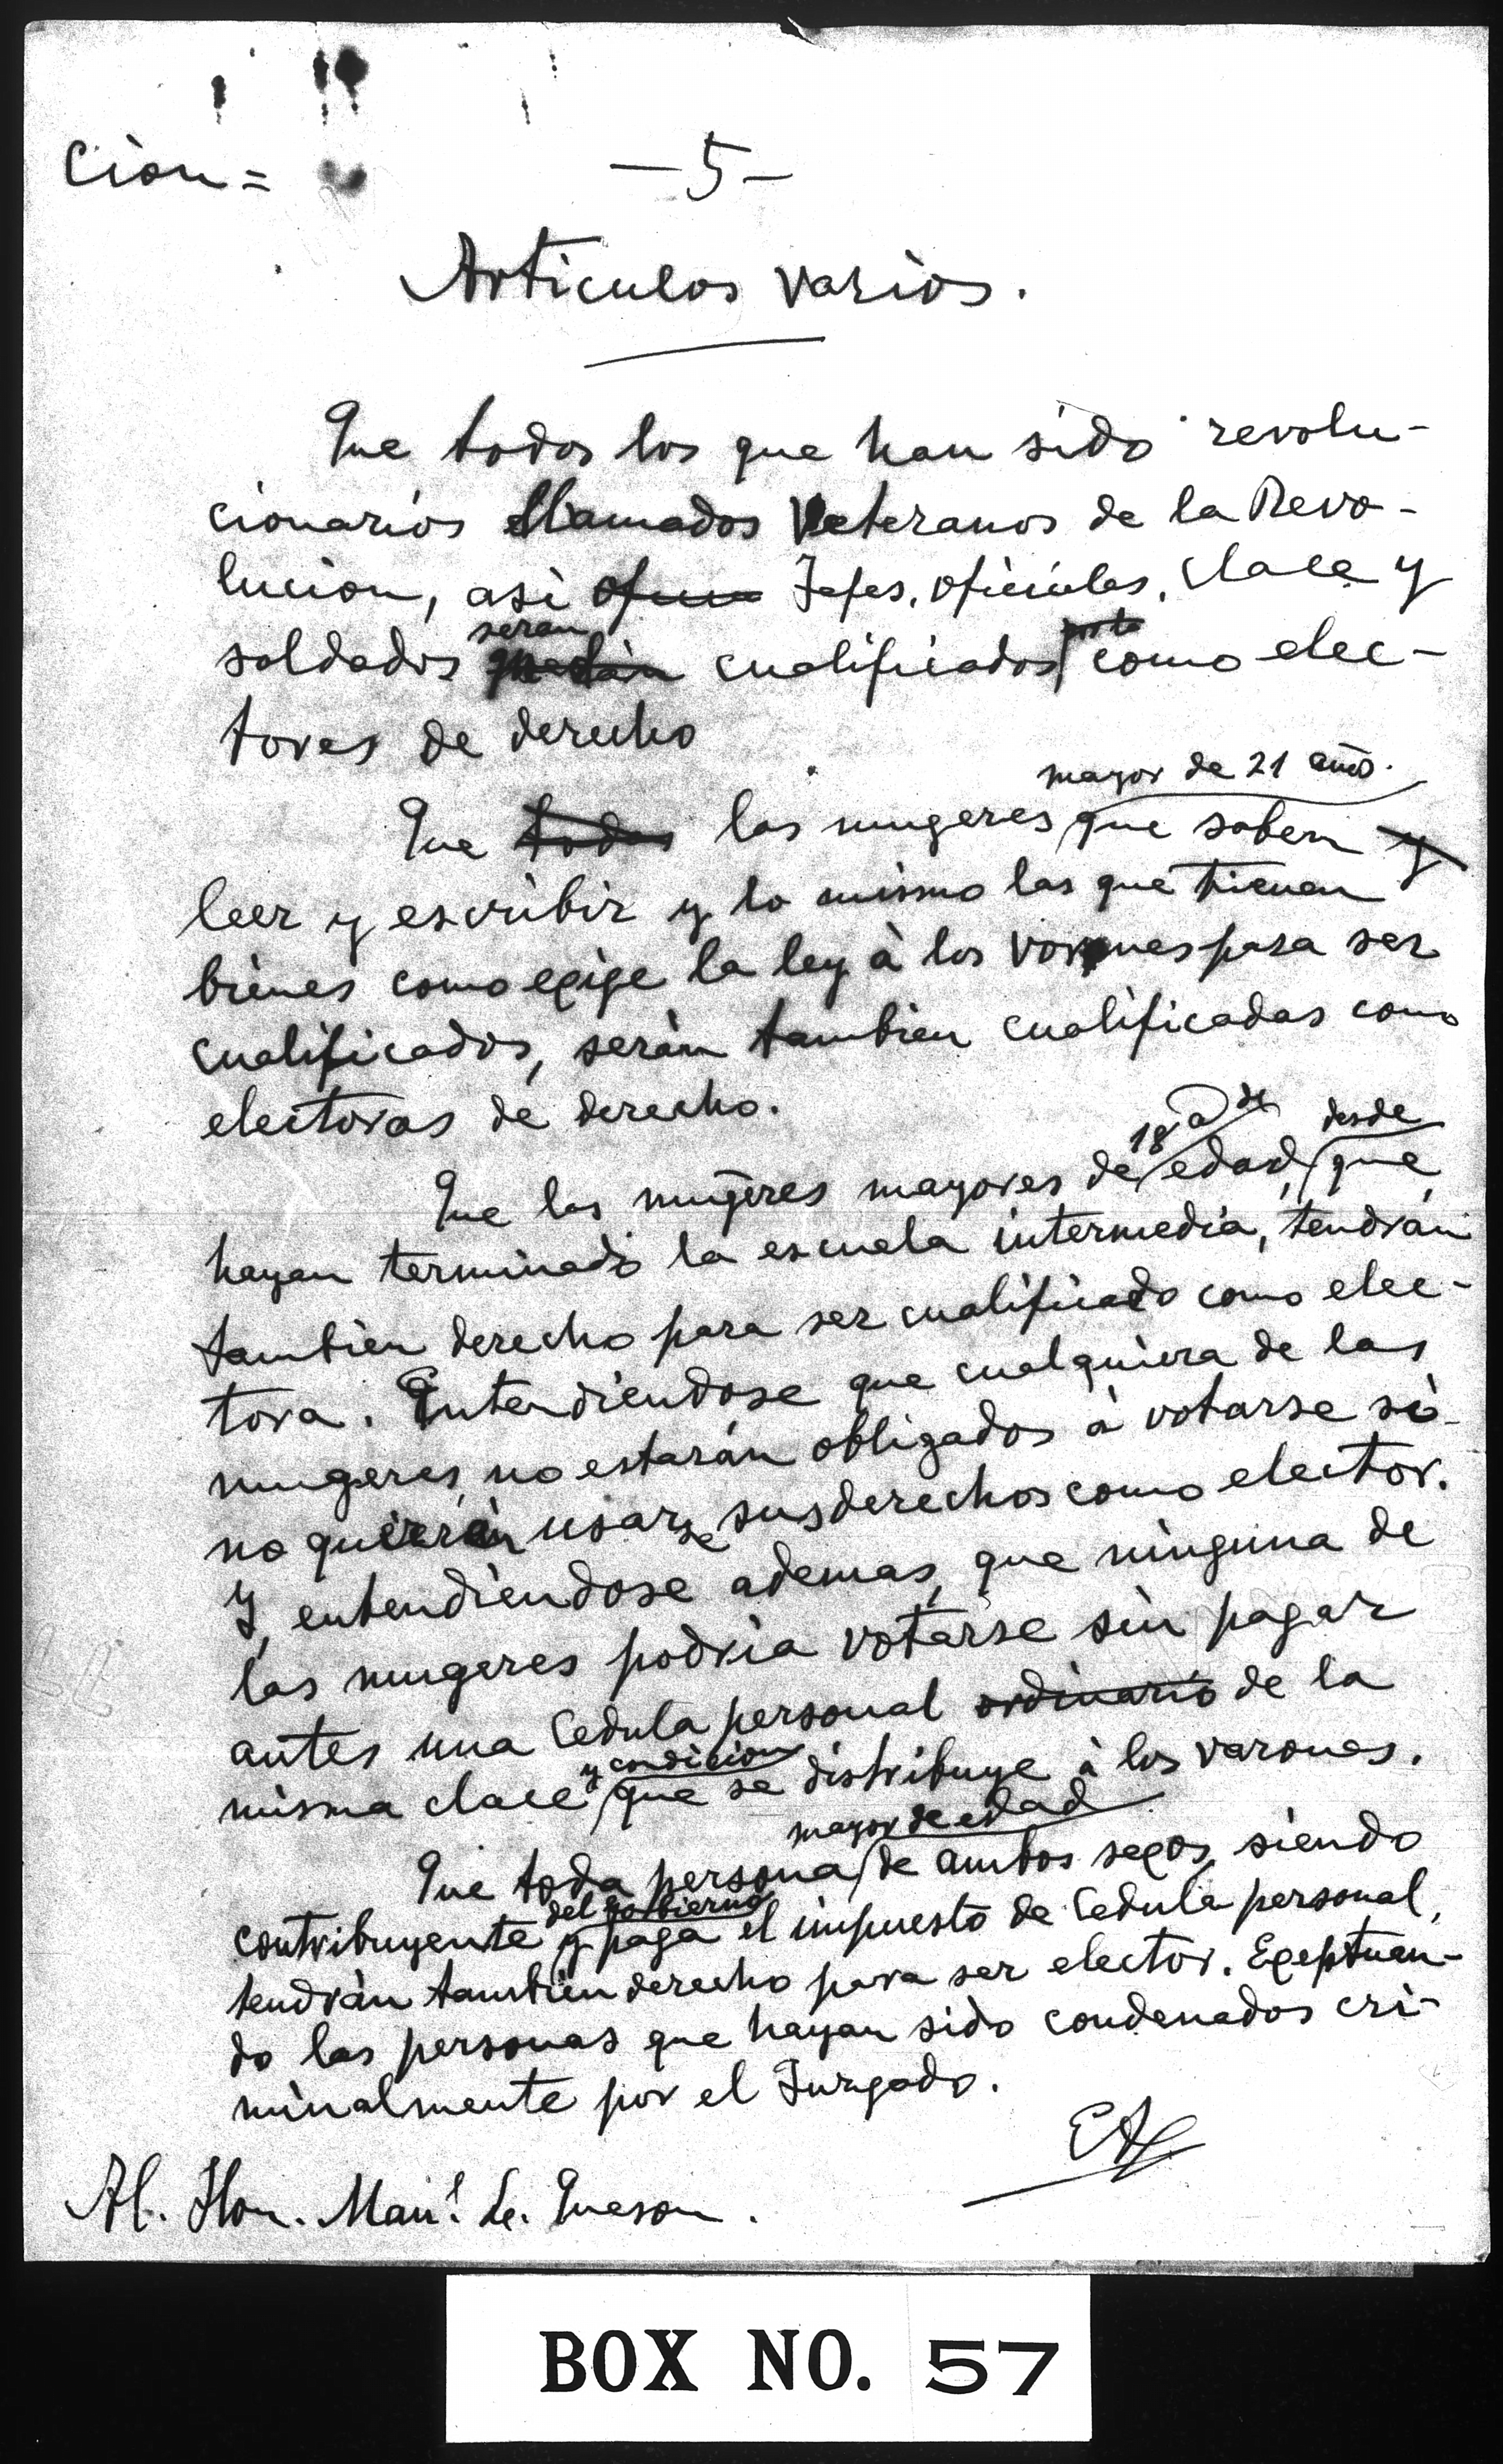 cion =
— 5 —
Articulos varios.
Que todos los que han sido revolu-
cionarios llamados Veteranos de la Revo-
lucion, asi Jefes, oficiales, clace y
seran
soldados cualificados como elec-
tores de derecho
mayor de 21 año.
Que todas las mugeres que saben y
leer y escribir y lo mismo las que tienen
bienes como exige la ley à los varones para ser
cualificados, seràn tambien cualificadas como
electoras de derecho.
18 a de desde
Que las mugeres mayores de edad, que
hayan terminado la escuela intermedia, tendràn
tambien derecho para ser cualificado como elec-
tora. Entendiendose que cualquiera de las
mugeres, no estaràn obligados à votarse si
no quieren usarse sus derechos como elector.
Y, entendiendose ademas, que ninguna de
las mugeres podria votarse sin pagar
antes una Cedula personal ordinario de la
y condicion
misma clace que se distribuye à los varones.
mayor de edad
Que toda persona de ambos sexos, siendo
del gobierno
contribuyente y paga el impuesto de Cedula personal,
tendràn tambien derecho para ser elector. Exeptuan-
do las personas que hayan sido condenados cri-
minalmente por el Jurgado.
EA
Al. Hon. Man.l L. Queson.
BOX NO. 57